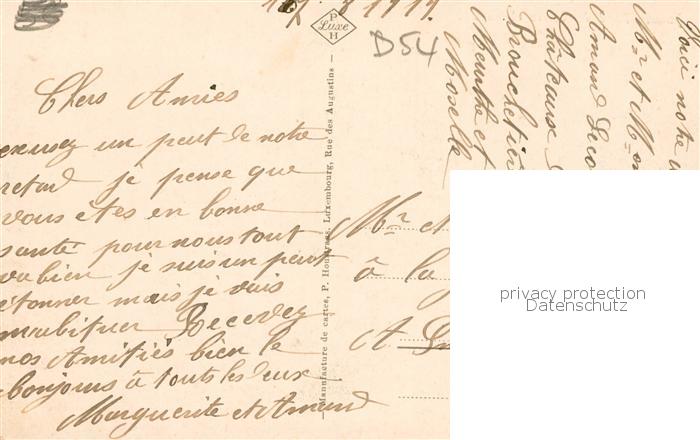 1919
P
Luxe
H
D54
Chers Amies
excusez un peut de notre
retard je pense que
vous etes en bonne
santé pour nous tout
va bien je suis un peut
étonner mais je vais
mabituer Recevez
nos Amitiés bien le
bonjours à touts les deux
Marguerite et Amand
Manufacture de cartes, P. Houstraas, Luxembourg, Rue des Augustins
Voici notre
Mr et Mme
Amand
Château
Meurthe et
Moselle
Mr et
à la
A
privacy protection
Datenschutz